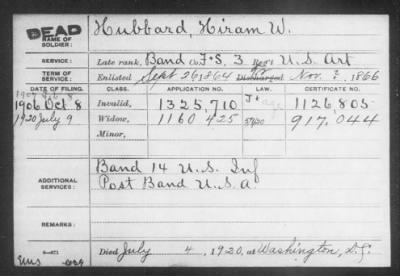 DEAD
NAME OF SOLDIER: Hubbard, Hiram W.
SERVICE: Late rank, Band Co. F & S, 3 Reg't U.S. Art
TERM OF SERVICE: Enlisted Sept 26, 1864 Discharged Nov. ?, 1866
DATE OF FILING. CLASS. APPLICATION NO. LAW. CERTIFICATE NO.
1906 Oct 8 Invalid, 1325,710 1126,805
1920 July 9 Widow, 1160 425 917,044
Minor,
ADDITIONAL SERVICES: Band 14 U.S. Inf
Post Band U.S.A
REMARKS:
Died July 4, 1920, at Washington, D.C.